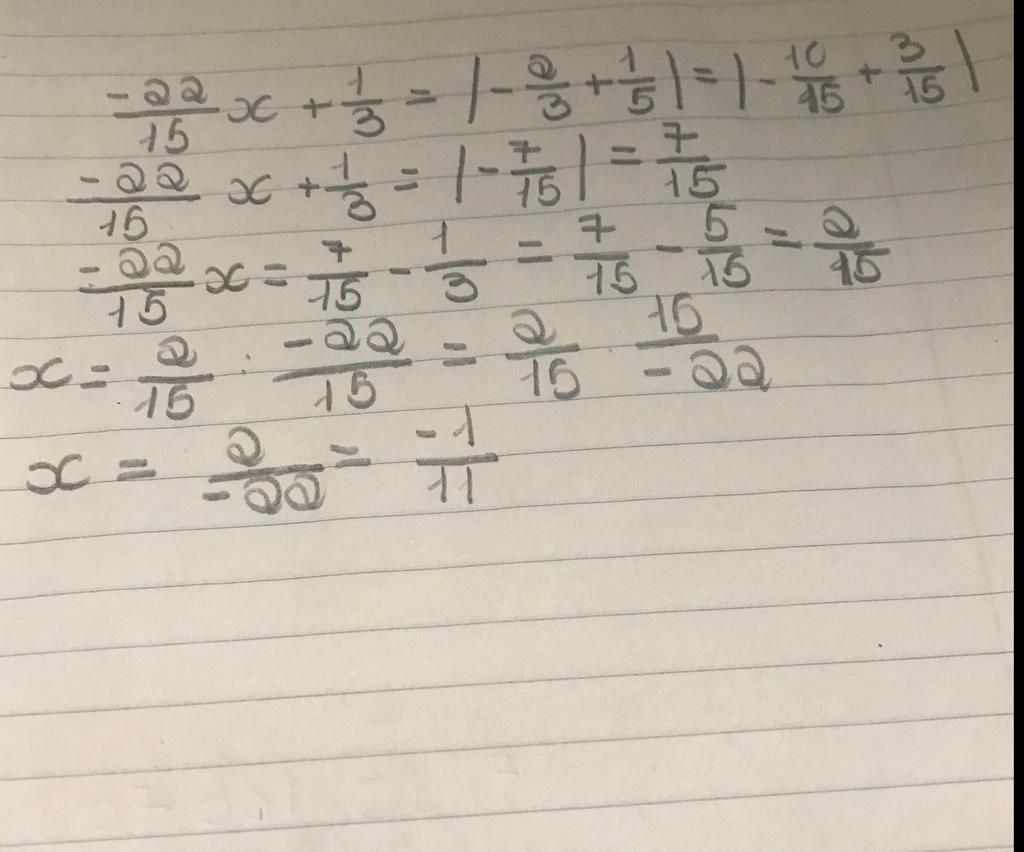 -22/15 x + 1/3 = |-2/3 + 1/5| = |-10/15 + 3/15|
-22/15 x + 1/3 = |-7/15| = 7/15
-22/15 x = 7/15 - 1/3 = 7/15 - 5/15 = 2/15
x = 2/15 : -22/15 = 2/15 · 15/-22
x = 2/-22 = -1/11